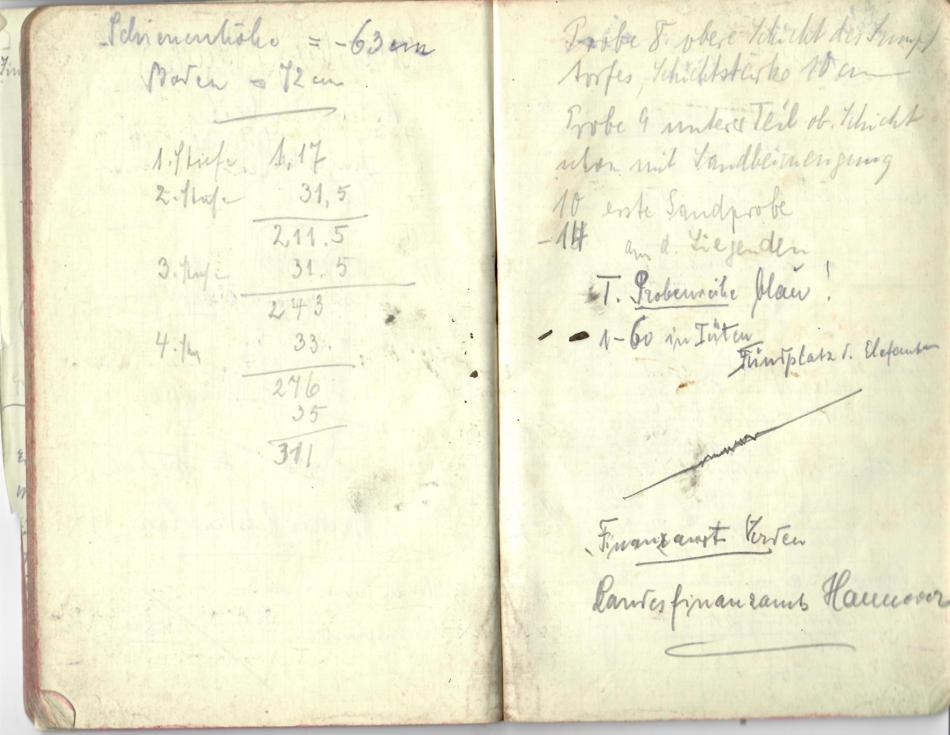 Schienenhöhe = -63 cm
Boden = 72 cm
1. Stufe 1,17
2. Stufe 31,5
211.5
3. Stuf- 31.5
243
4. 33.
276
35
311
Probe 8. obere Schicht des Sumpf
torfes, Schichtstärke 10 cm
Probe 9 unterer Teil ob. Schicht
schon mit Sandbeimengung
10 erste Sandprobe
-14 an d. Liegenden
I. Probenreihe blau!
1-60 in Tüten
Fundplatz d. Elefanten
Finanzamt Verden
Landesfinanzamt Hannover